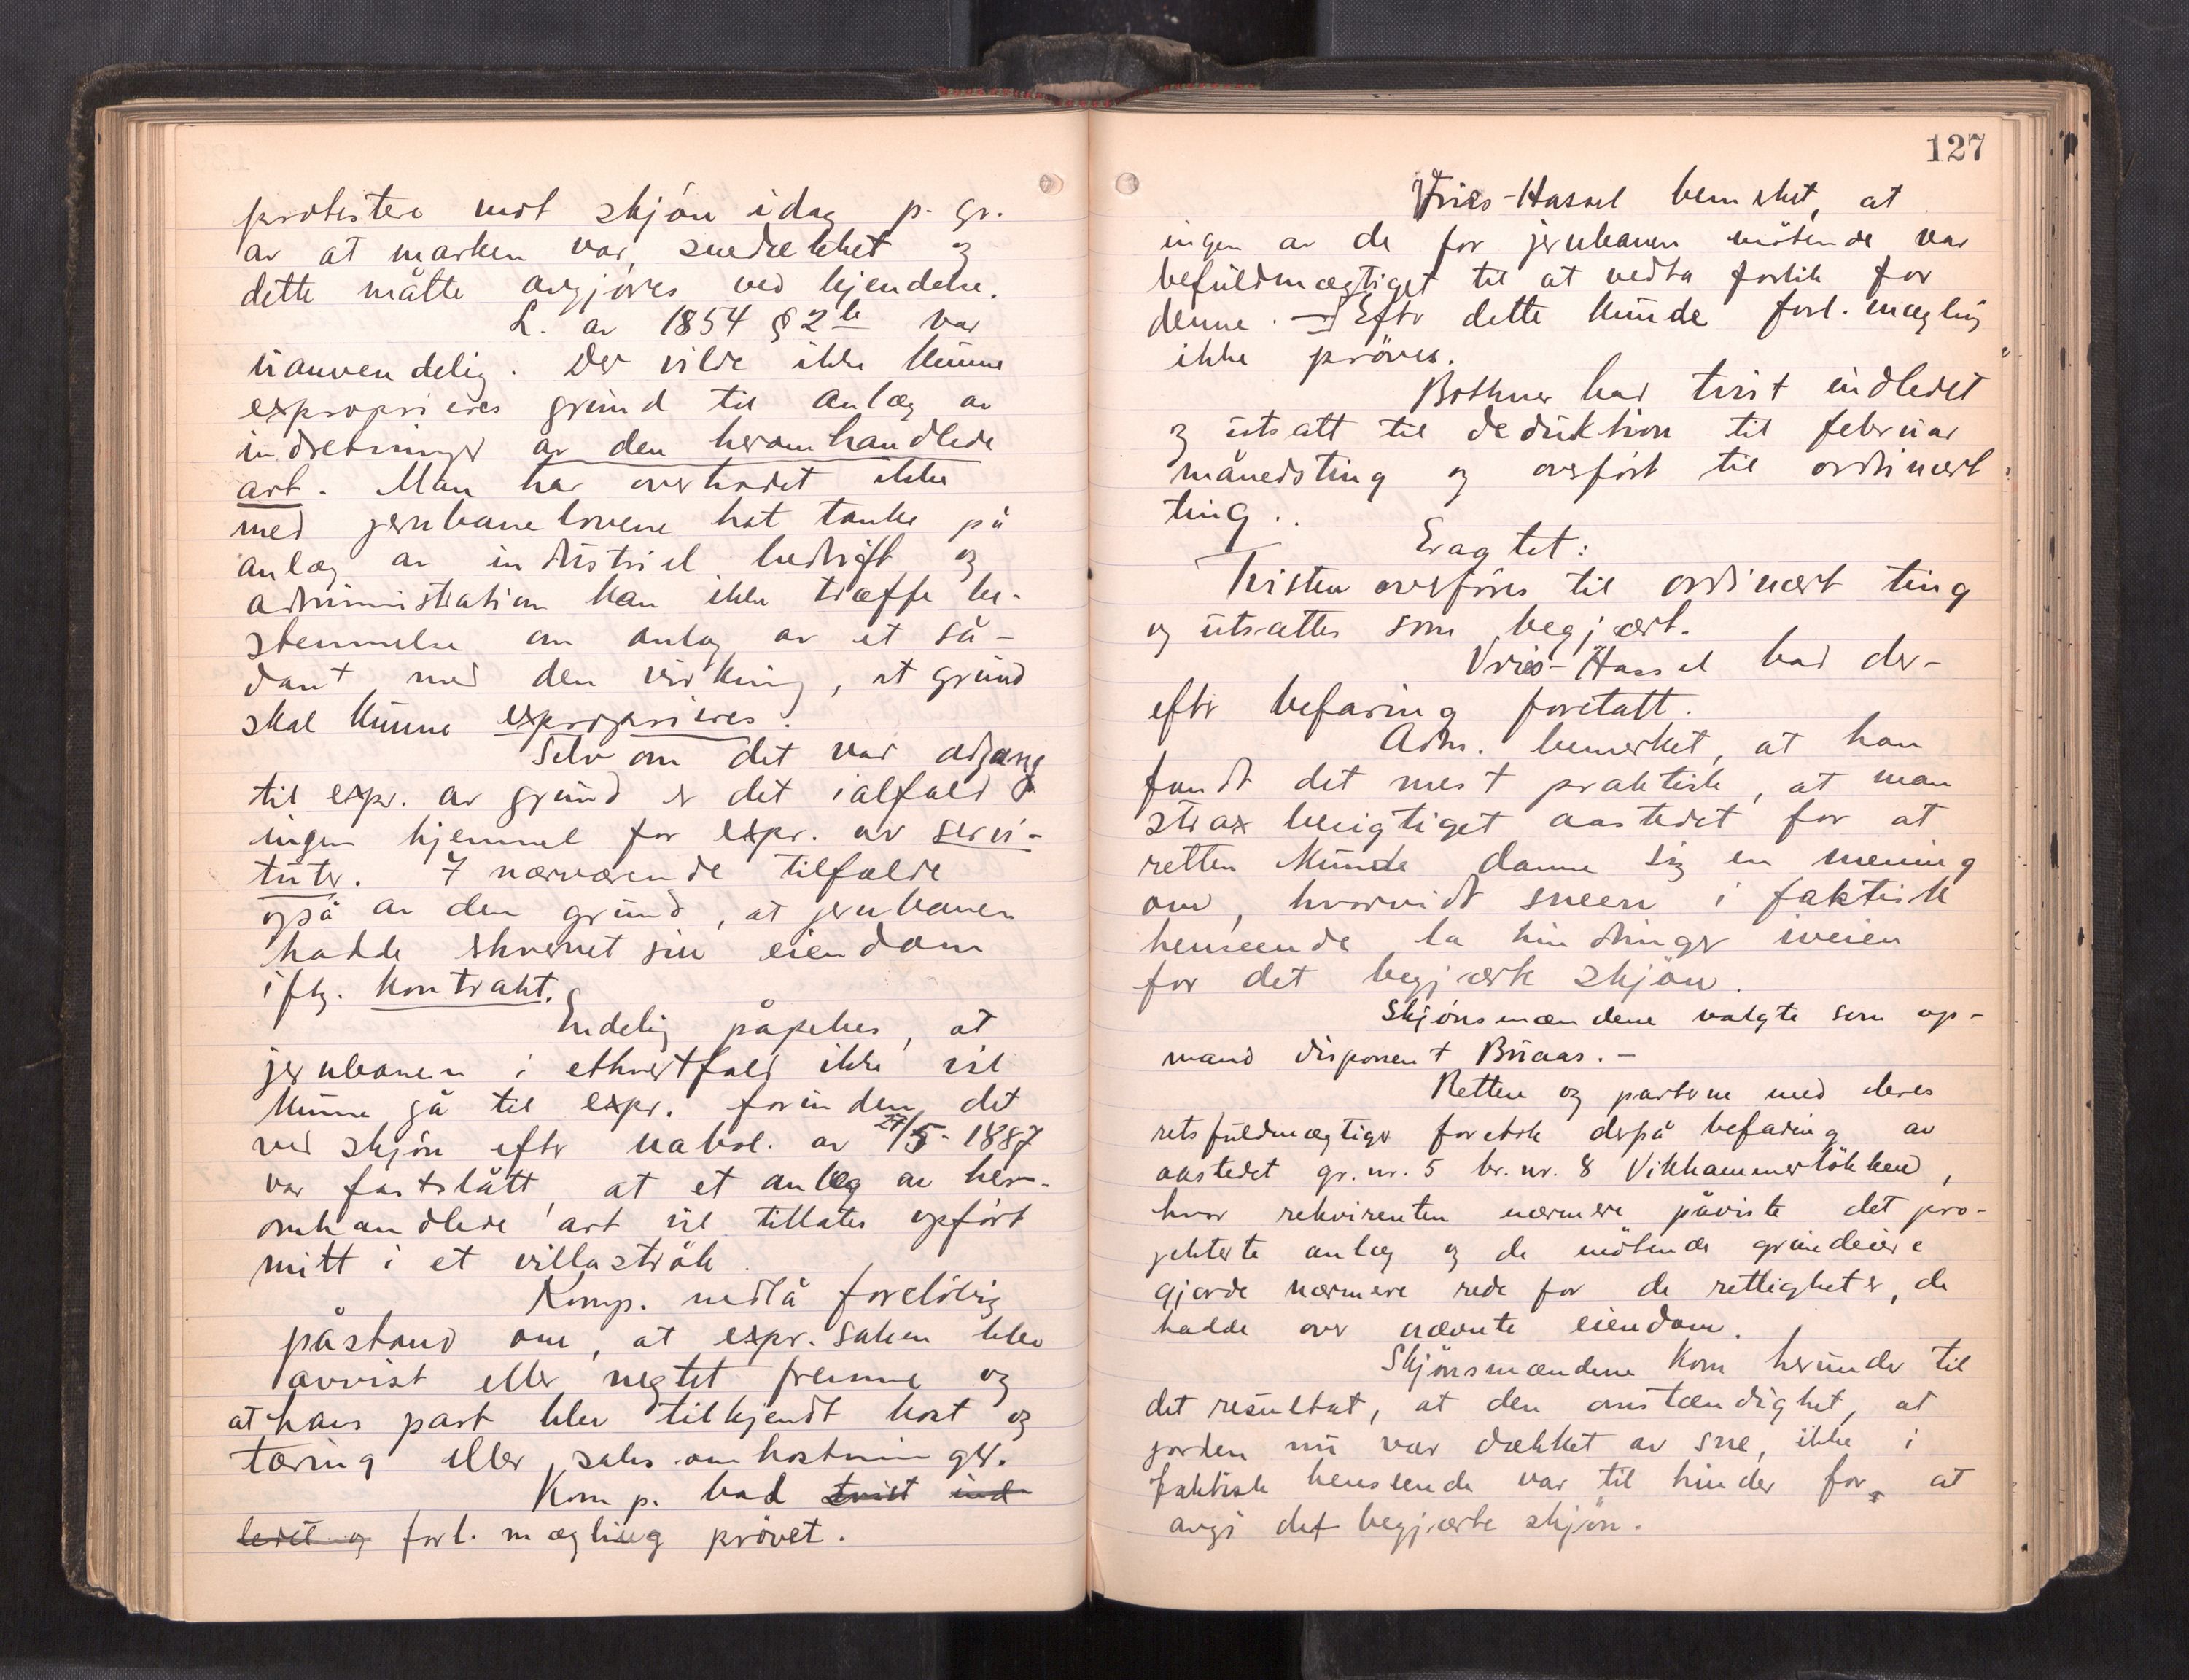 protestere mot skjön idag p. gr.
av at marken var snedækket og
dette måtte avgjöres ved kjendelse.
L. av 1854 § 2 b var
uanvendelig. Der vilde ikke kunne
exproprieres grund til anlæg av
indretninger av den heromhandlede
art. Man har overhodet ikke
med jernbanelovene hat tanke på
anlæg av industriel bedrift og
administration kan ikke træffe be-
stemmelse om anlæg av et så-
dant med den virkning, at grund
skal kunne exproprieres.
Selv om det var adgang
til expr. av grund er det ialfald
ingen hjemmel for expr. av servi-
tuter. I nærværende tilfælde
også av den grund, at jernbanen
hadde skrevet sin eiendom
iflg. kontrakt.
Endelig påpekes, at
jernbanen i ethvertfald ikke vil
kunne gå til expr. forinden det
ved skjön efter nabol. av 27/5-1887
var fastslått, at et anlæg av her-
omhandlede art vil tillates opfört
mitt i et villaströk.
Komp. nedlå forelöbig
påstand om, at expr. saken blev
avvist eller negtet fremme og
at hans part blev tilkjendt kost og
tæring eller saksomkostninger.
Komp. bad tvist ind
ledet og forl. mægling prövet.
127
Vries-Hassel bemerket, at
ingen av de for jernbanen mötende var
befuldmægtiget til at vedta forlik for
denne. — Efter dette kunde forl. mægling
ikke pröves.
Bothner bad tvist indledet
og utsatt til deduktion til februar
månedsting og overfört til ordinært
ting..
Eragtet:
Tvisten overföres til ordinært ting
og utsattes som begjært.
Vries-Hassel bad der-
efter befaring foretatt.
Adm. bemerket, at han
fandt det mest praktisk, at man
strax besigtiget aastedet for at
retten kunde danne sig en mening
om, hvorvidt sneen i faktisk
henseende la hindringer iveien
for det begjærte skjön.
Skjönsmændene valgte som op-
mand disponent Buaas. -
Retten og partene med deres
retsfuldmægtiger foretok derpå befaring av
aastedet gr. nr. 5 br. nr. 8 Vikhammerlökken,
hvor rekvirenten nærmere påviste det pro-
jekterte anlæg og de mötende grundeiere
gjorde nærmere rede for de rettigheter, de
hadde over nævnte eiendom.
Skjönsmændene kom herunder til
det resultat, at den omstændighet, at
jorden nu var dækket av sne, ikke i
faktisk henseende var til hinder for at
avgi det begjærte skjön.